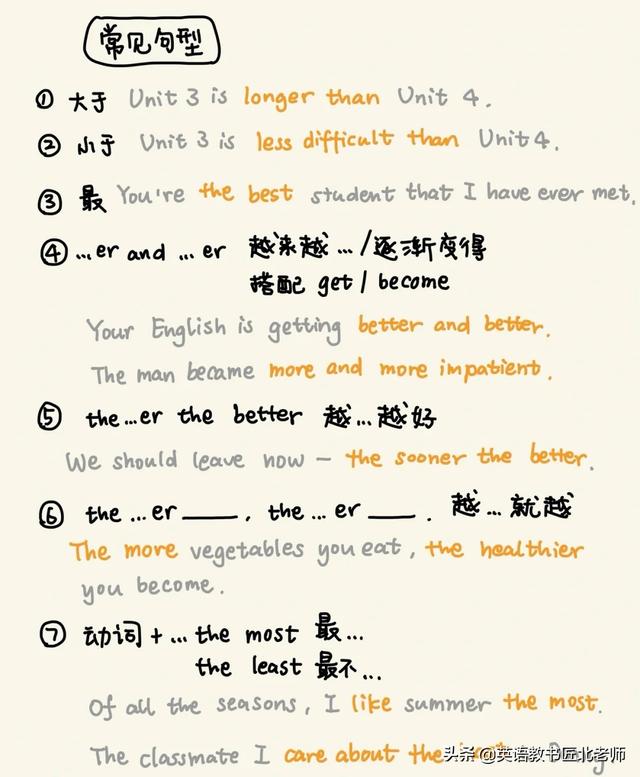 常见句型
① 大于 Unit 3 is longer than Unit 4.
② 小于 Unit 3 is less difficult than Unit 4.
③ 最 You're the best student that I have ever met.
④ ...er and ...er 越来越.../逐渐变得
搭配 get / become
Your English is getting better and better.
The man became more and more impatient.
⑤ the...er the better 越...越好
We should leave now — the sooner the better.
⑥ the ...er ____, the ...er ____. 越...就越
The more vegetables you eat, the healthier
you become.
⑦ 动词 + ... the most 最...
the least 最不...
Of all the seasons, I like summer the most.
The classmate I care about the
头条 @英语教书匠北老师